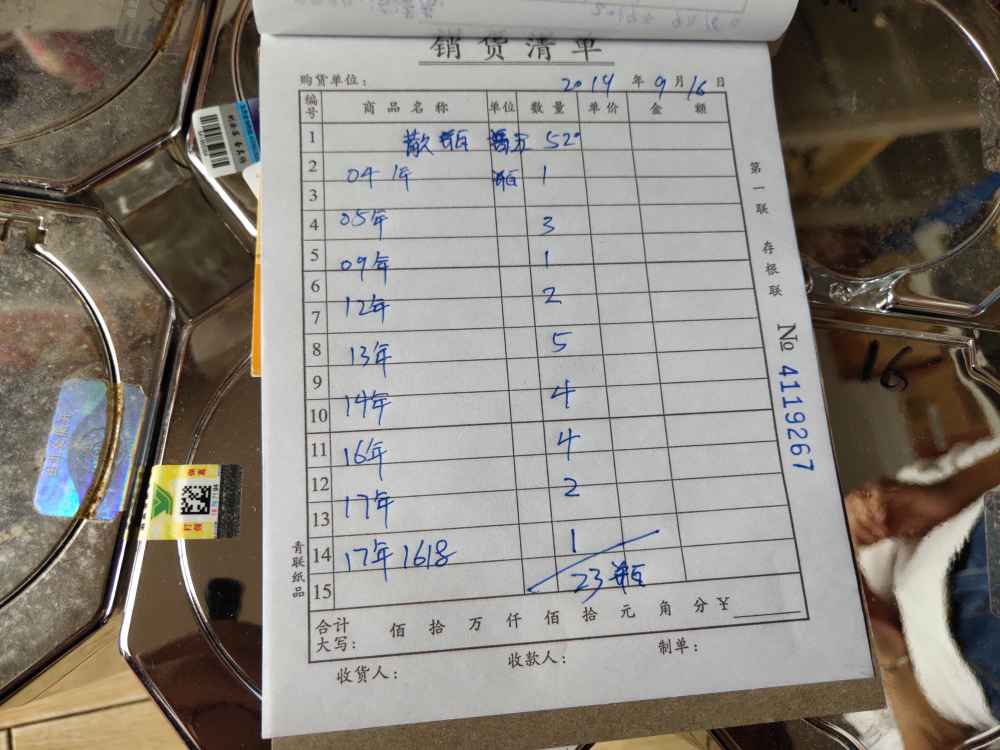 销货清单
购货单位： 2019 年 9 月 16 日
编号 商品名称 单位 数量 单价 金额
1 散瓶 普五 52°
2 04年 瓶 1
3
4 05年 3
5 09年 1
6 12年 2
7
8 13年 5
9
10 14年 4
11 16年 4
12 17年 2
13
14 17年1618 1
15 23瓶
合计大写： 佰 拾 万 仟 佰 拾 元 角 分 ¥
收货人： 收款人： 制单：
第一联 存根联
№ 4119267
青联纸品
16